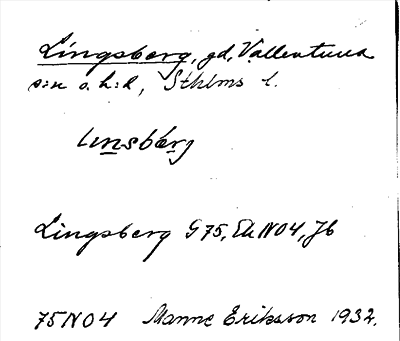 Lingsberg, gd, Vallentuna
s:n o. h:d, Sthlms l.
linsbärj
Lingsberg G75, Ek N04, Jb
75N04 Manne Eriksson 1932.